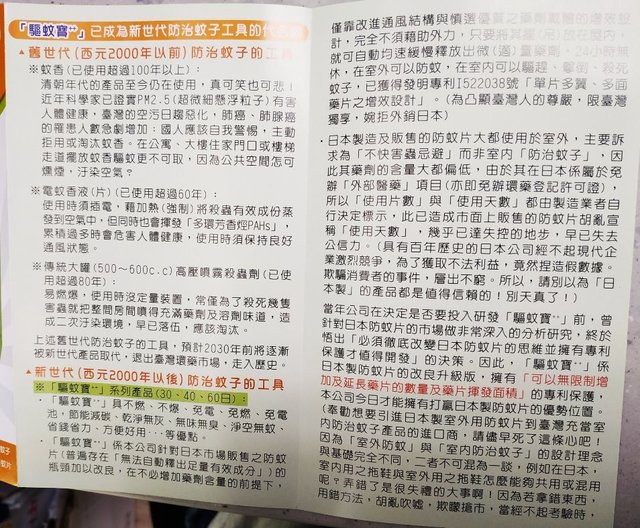 「驅蚊寶™」已成為新世代防治蚊子工具的代
▲舊世代(西元2000年以前)防治蚊子的工具
※蚊香(已使用超過100年以上):
清朝年代的產品至今仍在使用,真可笑也可悲!
近年科學家已證實PM2.5(超微細懸浮粒子)有害
人體健康,臺灣的空污日趨惡化,肺癌、肺腺癌
的罹患人數急劇增加。國人應該自我警惕,主動
拒用或淘汰蚊香。在公寓、大樓住家門口或樓梯
走道擺放蚊香驅蚊更不可取,因為公共空間怎可
燻煙,汙染空氣?
※電蚊香液(片)(已使用超過60年):
使用時須插電,藉加熱(強制)將殺蟲有效成份蒸
發到空氣中,但同時也會揮發「多環芳香烴PAHS」,
累積過多時會危害人體健康,使用時須保持良好
通風狀態。
※傳統大罐(500~600c.c)高壓噴霧殺蟲劑(已使
用超過80年):
易燃爆,使用時沒定量裝置,常僅為了殺死幾隻
害蟲就把整間房間噴得充滿藥劑及溶劑味道,造
成二次汙染環境,早已落伍,應該淘汰。
上述舊世代防治蚊子的工具,預計2030年前將逐漸
被新世代產品取代,退出臺灣環藥市場,走入歷史。
▲新世代(西元2000年以後)防治蚊子的工具
※「驅蚊寶™」系列產品(30、40、60日):
・「驅蚊寶™」具不燃、不爆、免電、免燃、免電
池,節能減碳、乾淨無灰、無味無臭、淨空無蚊、
省錢省力、方便好用…等優點。
・「驅蚊寶™」係本公司針對日本市場販售之防蚊
片(普遍存在「無法自動釋出足量有效成分」)的
瓶頸加以改良,在不必增加藥劑含量的前提下,
僅靠改進通風結構與慎選優質之藥劑載體的增效設
計,完全不須藉助外力,只要將其擺(吊)放在屋內
就可自動均速緩慢釋放出微(適)量藥劑,24小時無
休,在室外可以防蚊,在室內可以驅趕、擊倒、殺死
蚊子,已獲得發明專利I522038號「單片多翼、多面
藥片之增效設計」。(為凸顯臺灣人的尊嚴,限臺灣
獨享,婉拒外銷日本)
・日本製造及販售的防蚊片大都使用於室外,主要訴
求為「不快害蟲忌避」而非室內「防治蚊子」,因
此其藥劑的含量大都偏低,由於其在日本係屬於免
辦「外部醫藥」項目(亦即免辦環藥登記許可證),
所以「使用片數」與「使用天數」都由製造業者自
行決定標示,此已造成市面上販售的防蚊片胡亂宣
稱「使用天數」,幾乎已達失控的地步,早已失去
公信力。(具有百年歷史的日本公司經不起現代企
業激烈競爭,為了獲取不法利益,竟然捏造假數據。
欺騙消費者的事件,層出不窮。所以,請別以為「日
本製」的產品都是值得信賴的!別天真了!)
當年公司在決定是否要投入研發「驅蚊寶™」前,曾
針對日本防蚊片的市場做非常深入的分析研究,終於
悟出「必須徹底改變日本防蚊片的思維並擁有專利
保護才值得開發」的決策。因此,「驅蚊寶™」係
日本製防蚊片的改良升級版,擁有「可以無限制增
加及延長藥片的數量及藥片揮發面積」的專利保護,
本公司今日才能擁有打贏日本製防蚊片的優勢位置。
(奉勸想要引進日本製室外用防蚊片到臺灣充當室
內防治蚊子產品的進口商,請儘早死了這條心吧!
因為「室外防蚊」與「室內防治蚊子」的設計理念
與基礎完全不同,二者不可混為一談,例如在日本,
室內用之拖鞋與室外用之拖鞋怎麼能夠共用或混用
呢?弄錯了是很失禮的大事啊!因為若拿錯東西,
用錯方法,胡亂吹噓,欺矇搶市,當經不起考驗時,